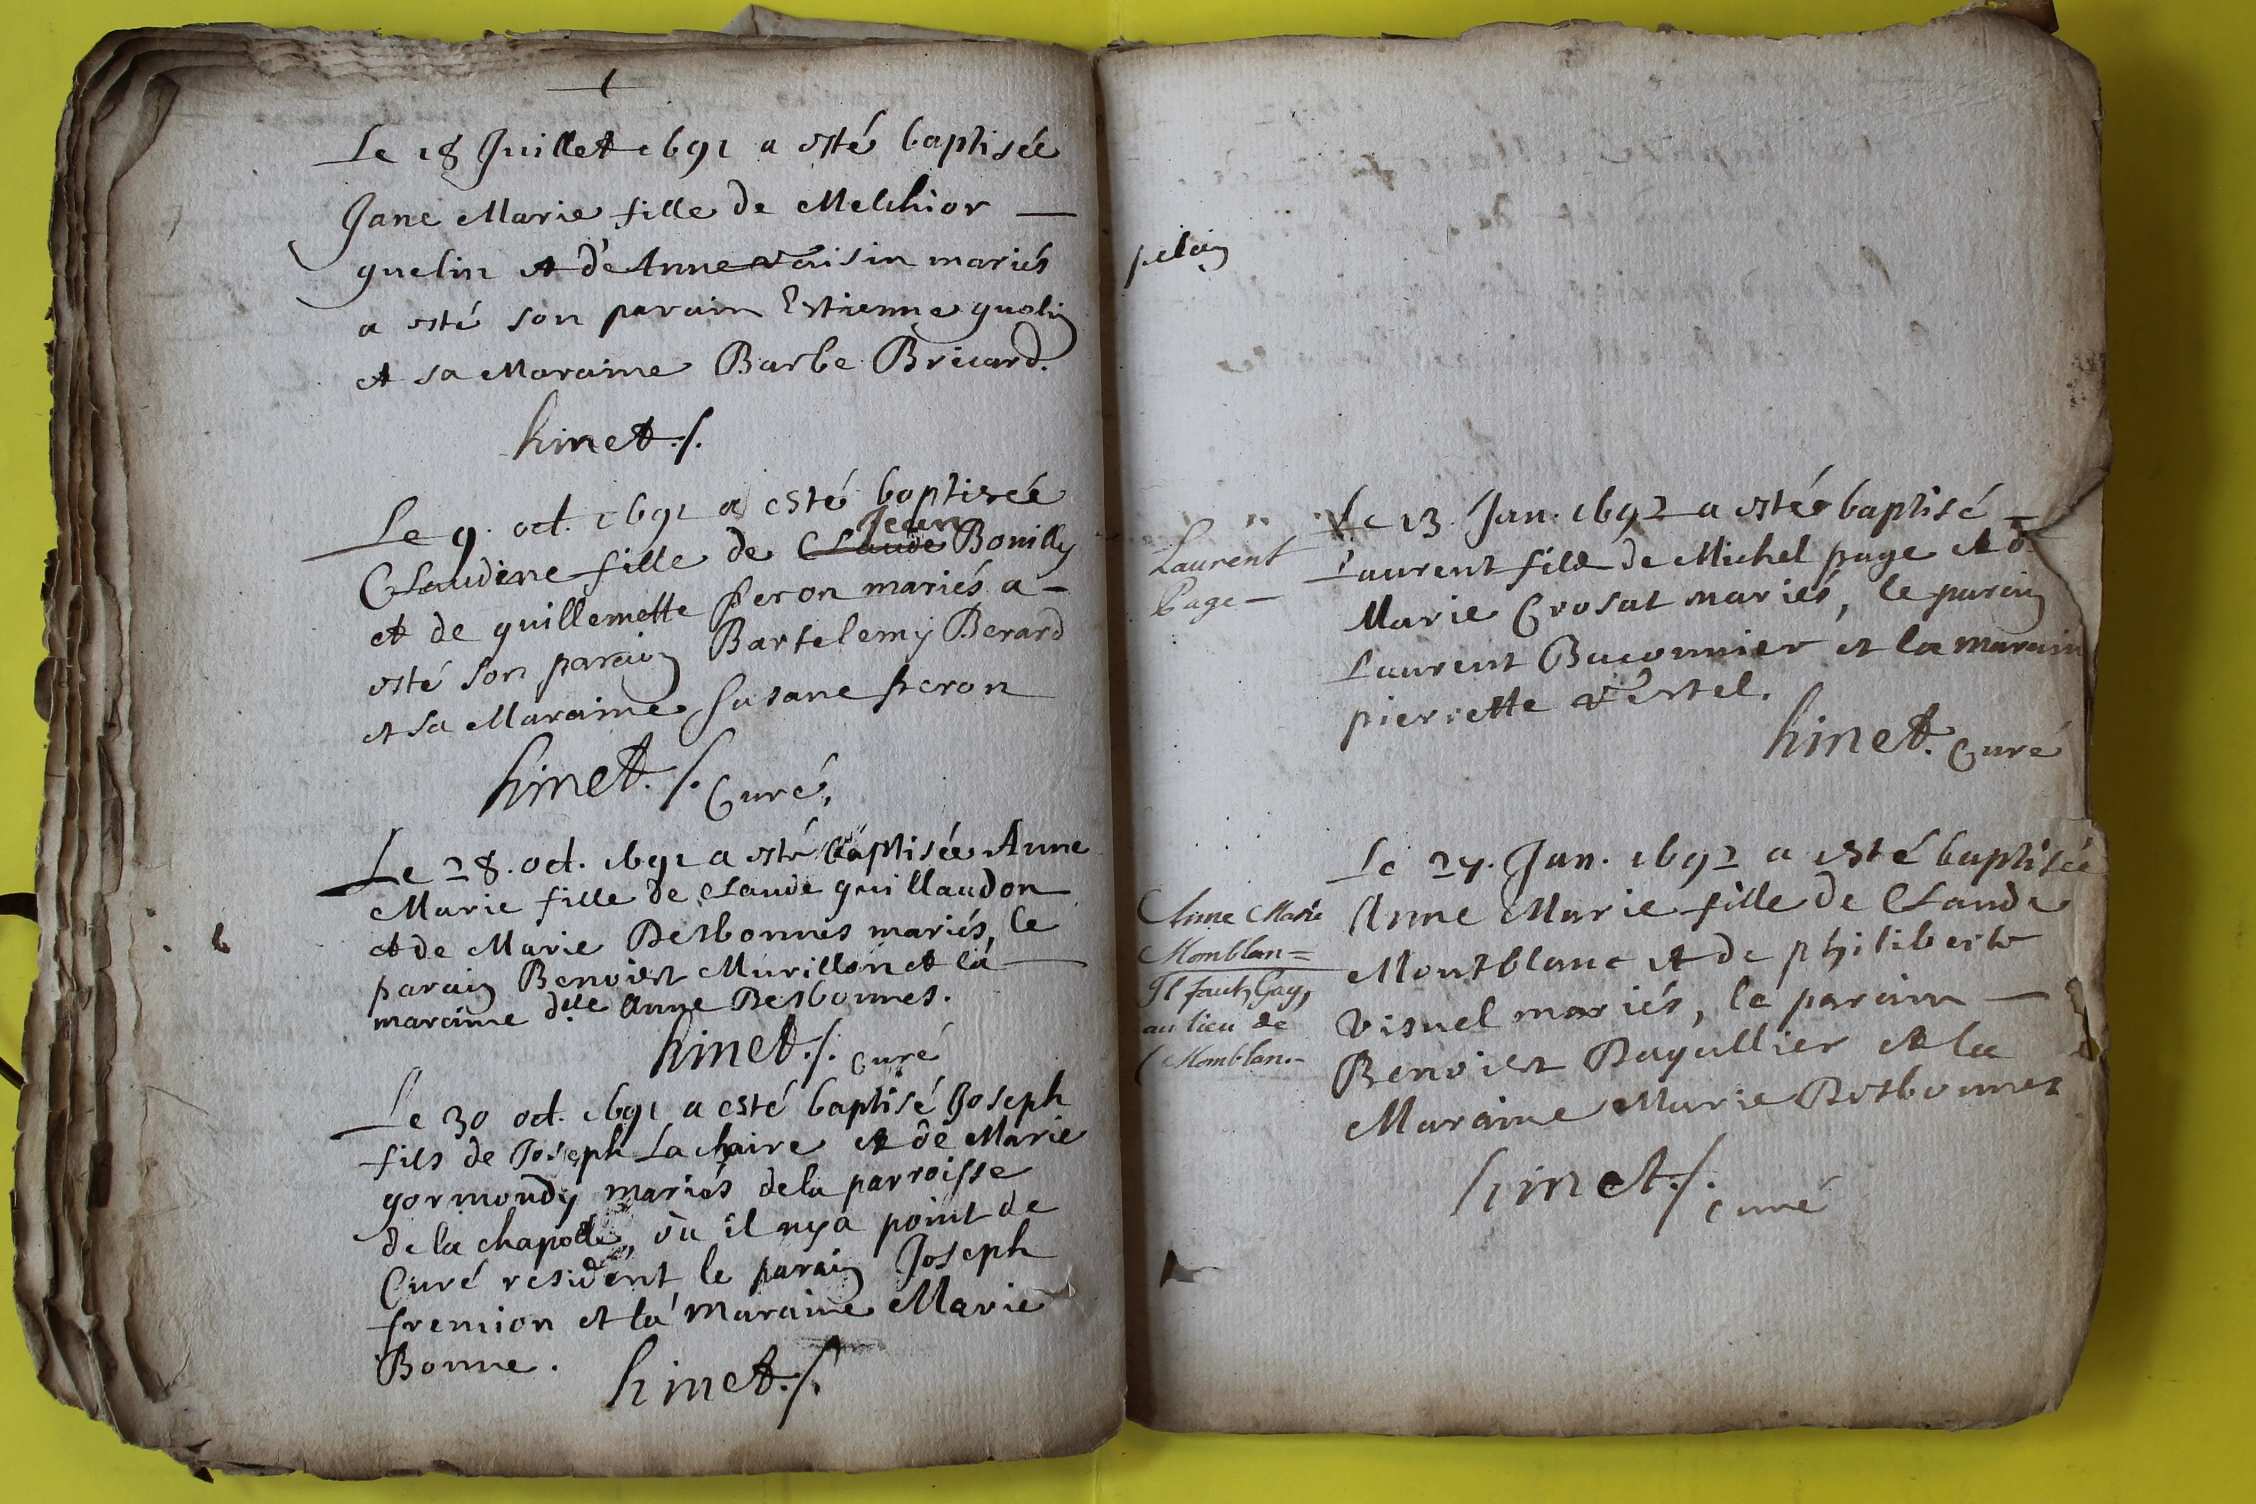 Le 18 Juillet 1691 a esté baptisée
Jane Marie fille de Melchior —
guelin et d'Anne voisin mariés
a esté son parain Estienne guelin
et sa Maraine Barbe Bricard.
hinet./.
Le 9. oct. 1691 a esté baptisée
Jean
Claudine fille de Claude Bouilly
et de guillemette peron mariés a —
esté son parain Bartelemy Berard
et sa Maraine Susane peron
hinet./. Curé,
Le 28. oct. 1691 a esté baptisée Anne
Marie fille de Claude guillaudon
et de Marie Desbonnes mariés, le
parain Benoist Murillon et la —
maraine dlle Anne Desbonnes.
hinet./. curé
Le 30 oct. 1691 a esté baptisé Joseph
fils de Joseph Lachaire et de Marie
gormondy mariés dela parroisse
de la chapelle, ou il nya point de
Curé resident le parain Joseph
fremion et la maraine Marie
Bonne.
hinet./.
Laurent
Page —
Le 13. Jan. 1692 a esté baptisé —
Laurent fils de Michel page et d
Marie Crosat mariés, le parain
Laurent Baconnier et la marain
pierrette vertel.
hinet. Curé
Anne Marie
Momblan =
Il faut Gay,
au lieu de
Momblan. -
Le 27. Jan. 1692 a esté baptisée
Anne Marie fille de Claude
Montblanc et de philiberte
visuel mariés, le parain —
Benoist Dagallier et la
Maraine Marie Desbonnes
hinet./.
curé